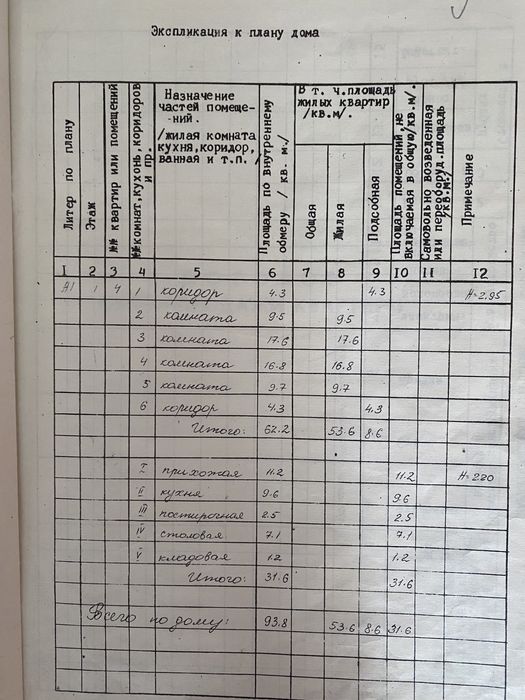 Экспликация к плану дома
Литер по плану
Этаж
№№ квартир или помещений
№№ комнат, кухонь, коридоров и пр.
Назначение
частей помеще-
-ний.
/жилая комната
кухня, коридор,
ванная и т.п. /
Площадь по внутреннему
обмеру / кв. м./
В т. ч. площадь
жилых квартир
/кв.м/.
Общая
Жилая
Подсобная
Площадь помещений, не
включаемая в общую/кв.м/.
Самовольно возведенная
или переоборуд. площадь
/кв.м/.
Примечание
I 2 3 4 5 6 7 8 9 I0 II I2
А1 1 4 1 коридор 4.3 4.3 H=2.95
2 комната 9.5 9.5
3 комната 17.6 17.6
4 комната 16.8 16.8
5 комната 9.7 9.7
6 коридор 4.3 4.3
Итого: 62.2 53.6 8.6
I прихожая 11.2 11.2 H=2.20
II кухня 9.6 9.6
III постирочная 2.5 2.5
IV столовая 7.1 7.1
V кладовая 1.2 1.2
Итого: 31.6 31.6
Всего по дому: 93.8 53.6 8.6 31.6